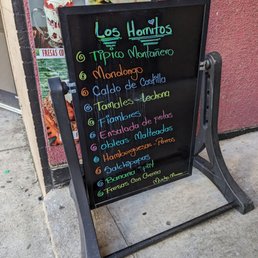 Los Hornitos
Típico Montañero
Mondongo
Caldo de Costilla
Tamales - Lechona
Fiambres
Ensalada de frutas
obleas Malteadas
Hamburguesas - Perros
Salchipapas
Banana split
Fresas Con Crema